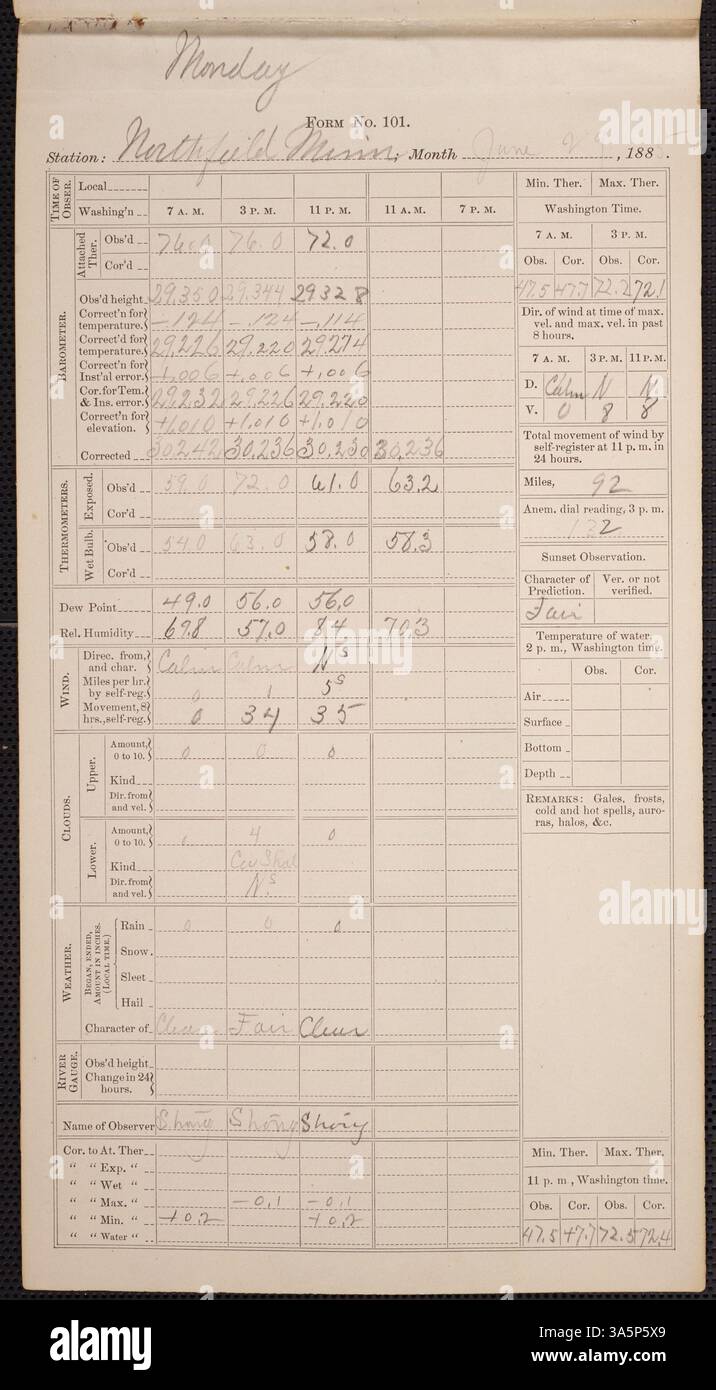 Monday
FORM No. 101.
Station: Northfield Minn; Month June 29, 1885.
TIME OF OBSER.
Local
Washing'n 7 A. M. 3 P. M. 11 P. M. 11 A. M. 7 P. M.
Attached Ther.
Obs'd 76.0 76.0 72.0
Cor'd
BAROMETER.
Obs'd height 29.350 29.344 29328
Correct'n for temperature. -.124 -.124 -.114
Correct'd for temperature. 29.226 29.220 29.274
Correct'n for Inst'al error. +.006 +.006 +.006
Cor. for Tem. & Ins. error. 29.232 29.226 29.220
Correct'n for elevation. +1.010 +1.010 +1.010
Corrected 30.242 30.236 30.230 30.236
THERMOMETERS.
Exposed.
Obs'd 59.0 72.0 61.0 63.2
Cor'd
Wet Bulb.
Obs'd 54.0 63.0 58.0 58.3
Cor'd
Dew Point 49.0 56.0 56.0
Rel. Humidity 69.8 57.0 84 70.3
WIND.
Direc. from, and char. Calm Calm N s
Miles per hr. by self-reg. 0 1 5 s
Movement, 8 hrs., self-reg. 0 34 35
CLOUDS.
Upper.
Amount, 0 to 10. 0 0 0
Kind
Dir. from and vel.
Lower.
Amount, 0 to 10. 0 4 0
Kind
Dir. from and vel. N s
WEATHER.
BEGAN, ENDED, AMOUNT IN INCHES. (LOCAL TIME.)
Rain 0 0 0
Snow.
Sleet
Hail
Character of Clear Fair Clear
RIVER GAUGE.
Obs'd height
Change in 24 hours.
Name of Observer
Cor. to At. Ther
" " Exp. "
" " Wet "
" " Max. " -0.1 -0.1
" " Min. " +0.2 +0.2
" " Water "
Min. Ther. Max. Ther.
Washington Time.
7 A. M. 3 P. M.
Obs. Cor. Obs. Cor.
47.5 47.7 72.2 72.1
Dir. of wind at time of max. vel. and max. vel. in past 8 hours.
7 A. M. 3 P.M. 11 P.M.
D. Calm N N
V. 0 8 8
Total movement of wind by self-register at 11 p. m. in 24 hours.
Miles, 92
Anem. dial reading, 3 p. m.
132
Sunset Observation.
Character of Prediction. Ver. or not verified.
Fair
Temperature of water. 2 p. m., Washington time.
Obs. Cor.
Air
Surface
Bottom
Depth
REMARKS: Gales, frosts, cold and hot spells, auroras, halos, &c.
Min. Ther. Max. Ther.
11 p. m., Washington time.
Obs. Cor. Obs. Cor.
47.5 47.7 72.5 72.4
alamy
alamy
Image ID: 3A5P5X9
www.alamy.com